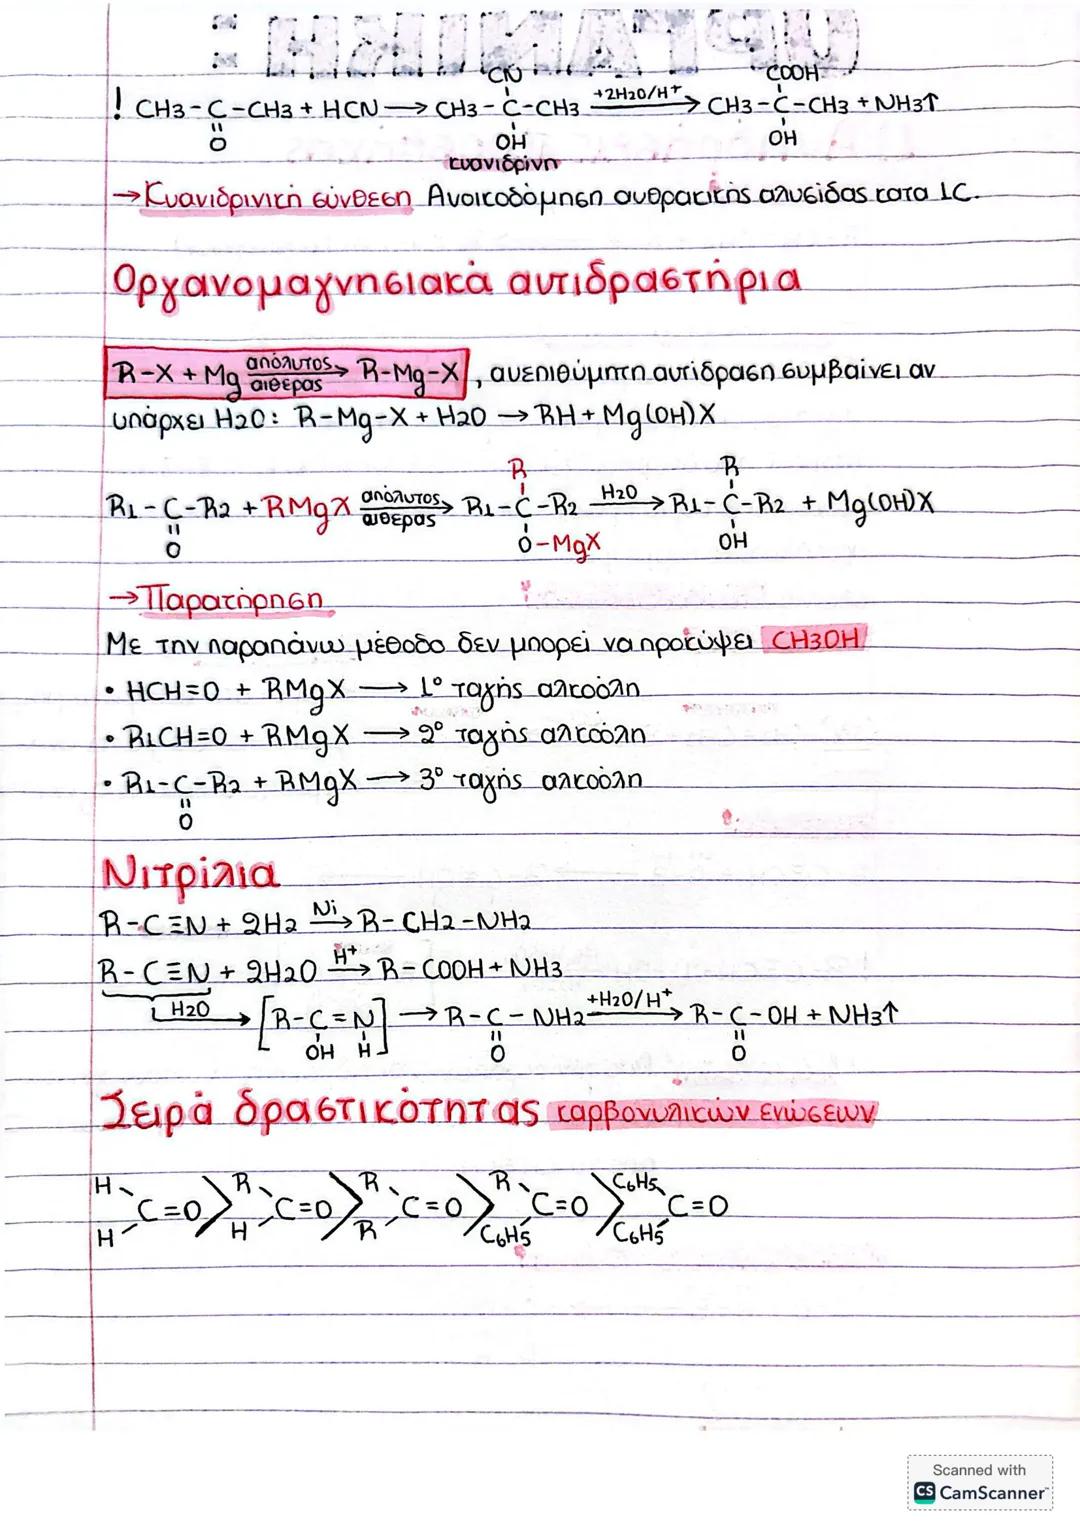 CN COOH
! CH3-C-CH3 + HCN → CH3-C-CH3 +2H2O/H+ → CH3-C-CH3 + NH3↑
O OH OH
κυανιδρίνη
→ Κυανιδρινική σύνθεση Ανοικοδόμηση ανθρακικής αλυσίδας κατα 1C.
Οργανομαγνησιακά αντιδραστήρια
R-X + Mg απόλυτος αιθέρας → R-Mg-X , ανεπιθύμητη αντίδραση συμβαίνει αν
υπάρχει H2O: R-Mg-X + H2O → RH + Mg(OH)X
R R
R1-C-R2 + RMgX απόλυτος αιθέρας → R1-C-R2 H2O → R1-C-R2 + Mg(OH)X
O O-MgX OH
→ Παρατήρηση
Με την παραπάνω μέθοδο δεν μπορεί να προκύψει CH3OH
• HCH=O + RMgX → 1° ταγής αλκοόλη
• R1CH=O + RMgX → 2° ταγής αλκοόλη
• R1-C-R2 + RMgX → 3° ταγής αλκοόλη
O
Νιτρίλια
R-C≡N + 2H2 Ni → R-CH2-NH2
R-C≡N + 2H2O H+ → R-COOH + NH3
H2O → [R-C=N] → R-C-NH2 +H2O/H+ → R-C-OH + NH3↑
OH H O O
Σειρά δραστικότητας καρβονυλικών ενώσεων
H R R R C6H5
C=O > C=O > C=O > C=O > C=O
H H R C6H5 C6H5
Scanned with
CS CamScanner